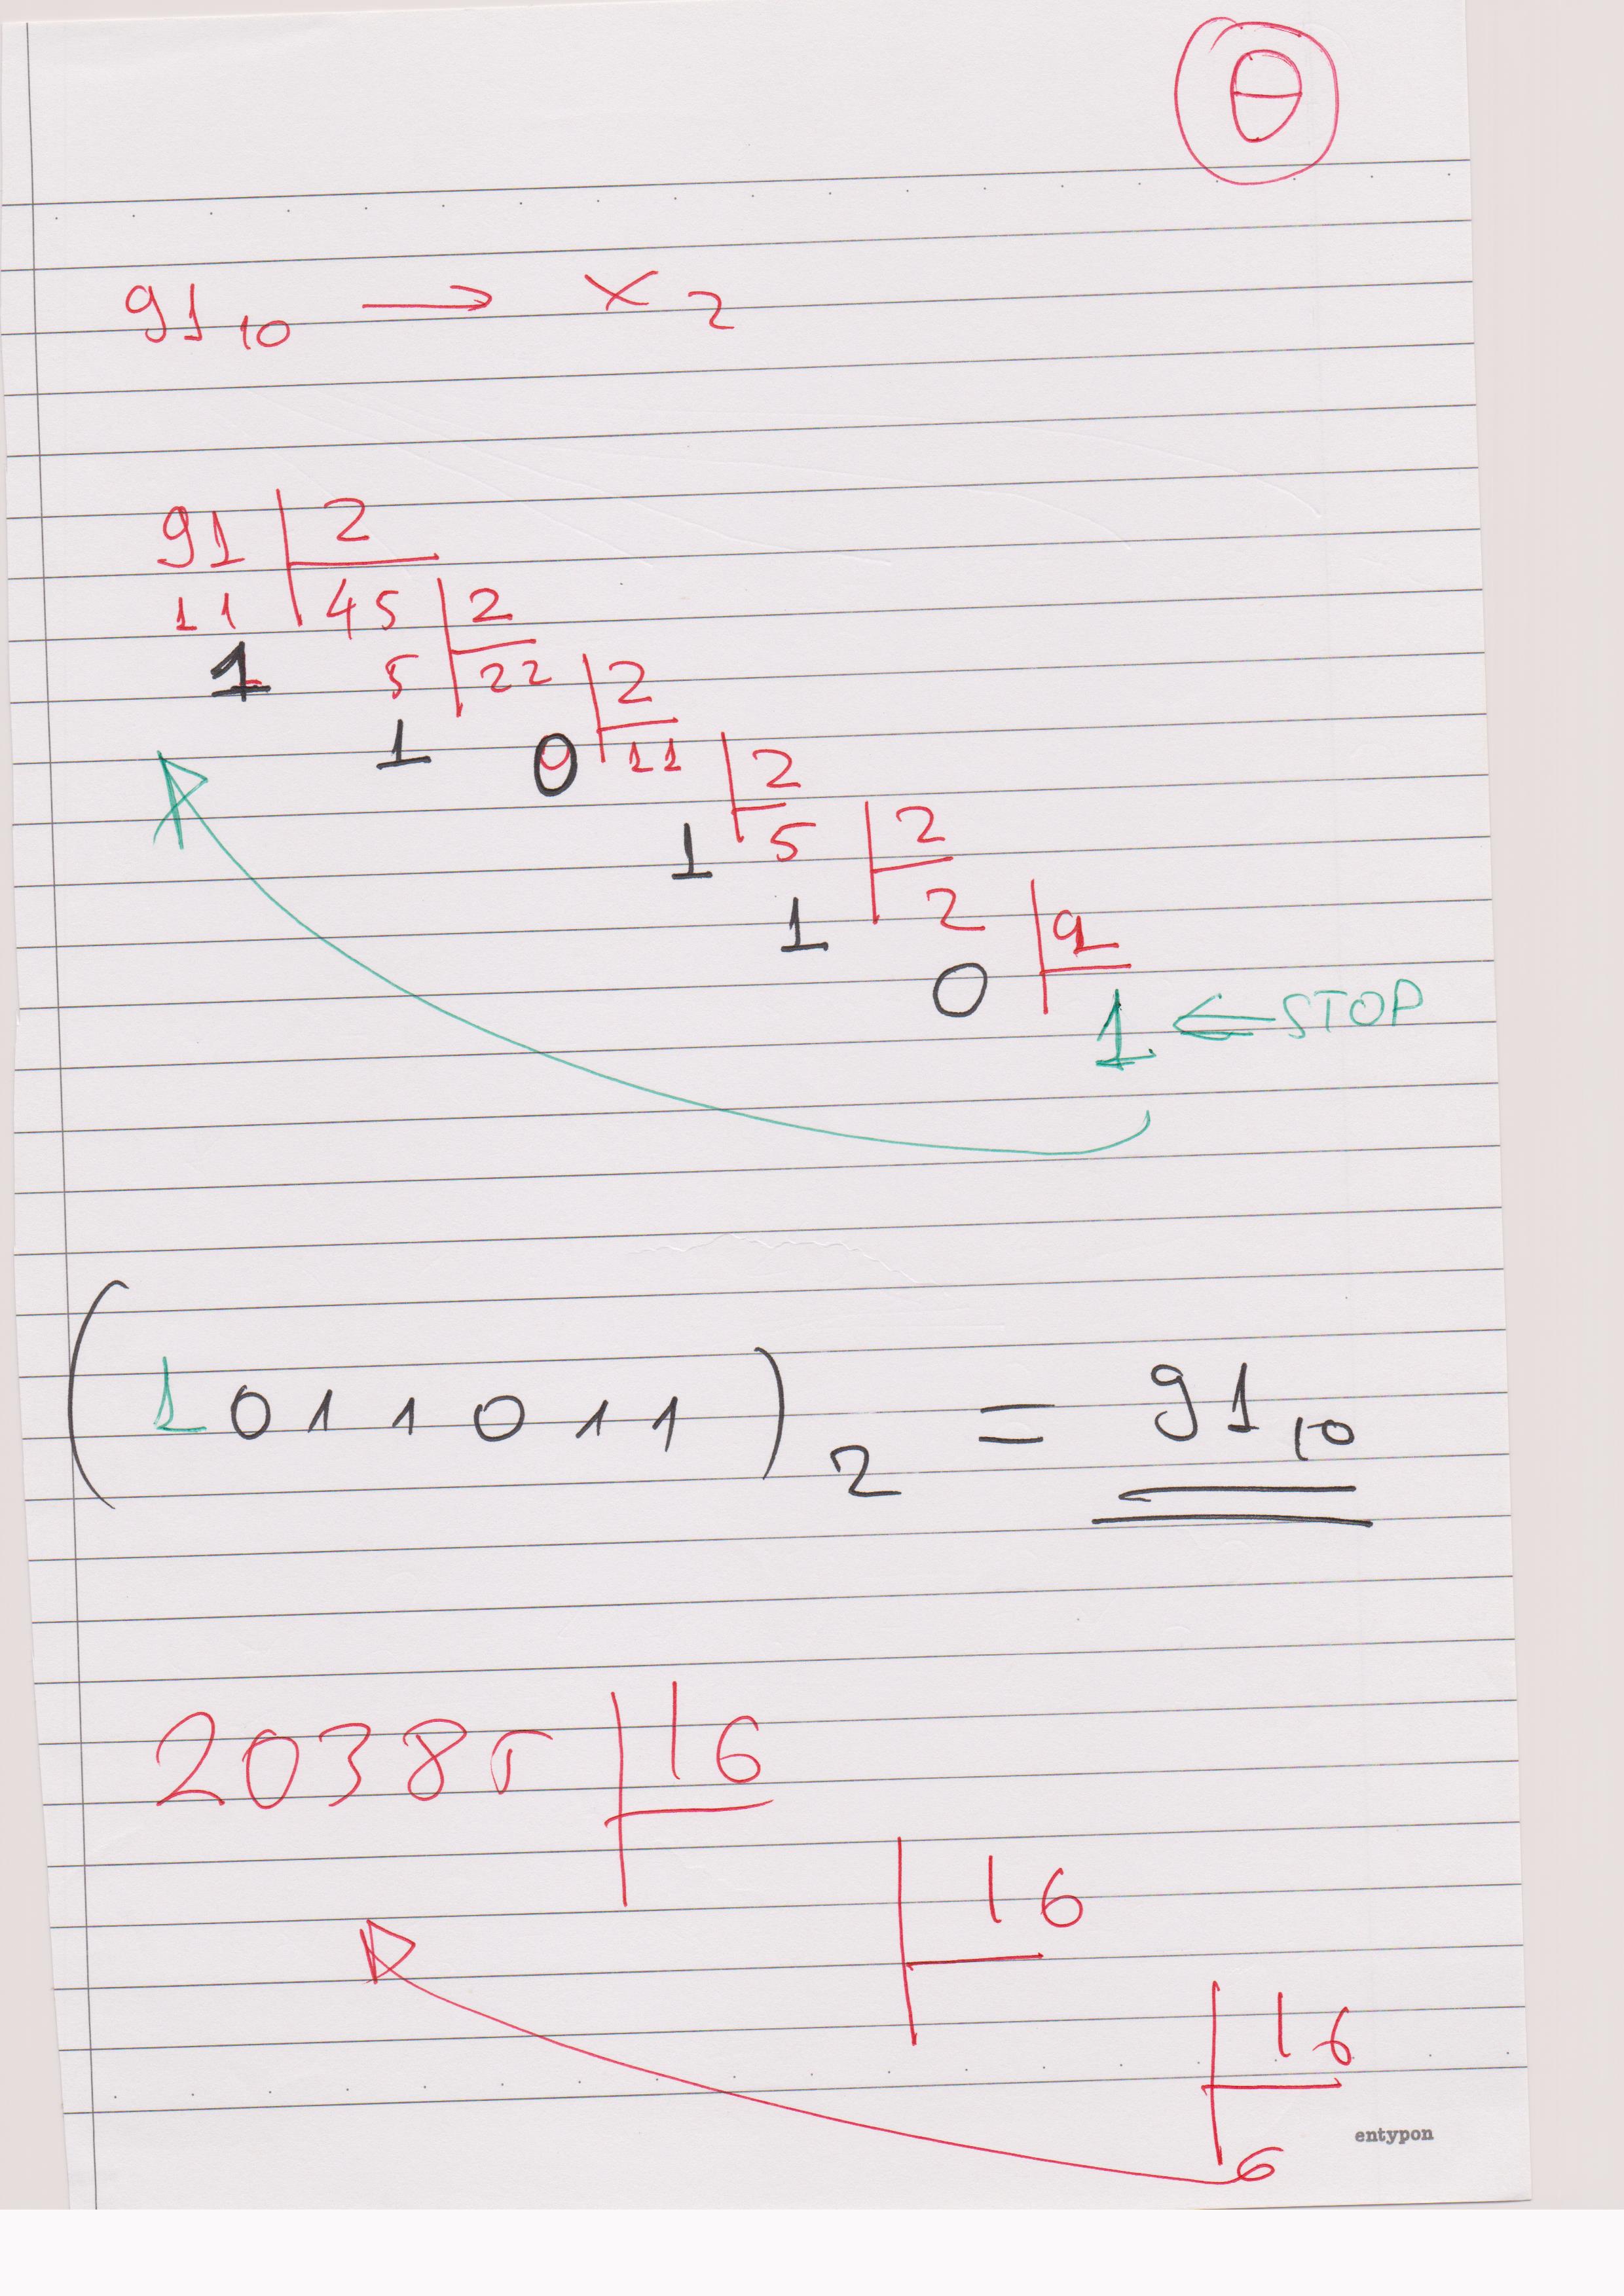 Θ
91₁₀ → x₂
91 | 2
11 | 45 | 2
1 5 | 22 | 2
1 0 | 11 | 2
1 5 | 2
1 2 | 2
0 1 ⇐ STOP
(1011011)₂ = 91₁₀
20385 | 16
16
16
6
entypon